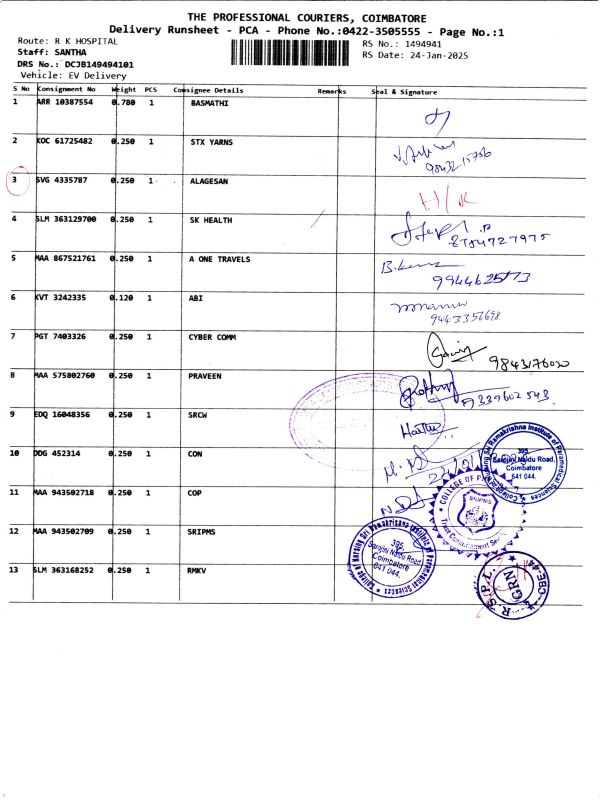 THE PROFESSIONAL COURIERS, COIMBATORE
Delivery Runsheet - PCA - Phone No.:0422-3505555 - Page No.:1
Route: R K HOSPITAL
Staff: SANTHA
DRS No.: DCJB149494101
Vehicle: EV Delivery
RS No.: 1494941
RS Date: 24-Jan-2025
S No Consignment No Weight PCS Consignee Details Remarks Seal & Signature
1 ARR 10387554 0.780 1 BASMATHI
2 KOC 61725482 0.250 1 STX YARNS
3 SVG 4335787 0.250 1 ALAGESAN
H/K
4 SLM 363129700 0.250 1 SK HEALTH
8754727975
5 MAA 867521761 0.250 1 A ONE TRAVELS
6 KVT 3242335 0.120 1 ABI
9443356698
7 PGT 7403326 0.250 1 CYBER COMM
8 MAA 575802760 0.250 1 PRAVEEN
9 EDQ 16048356 0.250 1 SRCW
10 DDG 452314 0.250 1 CON
College of Nursing Sri Ramakrishna Institute of Paramedical Sciences
395,
Sarojini Naidu Road,
Coimbatore
641 044.
11 MAA 943502718 0.250 1 COP
COLLEGE OF
SRIPMS
12 MAA 943502709 0.250 1 SRIPMS
College of Nursing Sri Ramakrishna Institute of Paramedical Sciences
395,
Sarojini Naidu Road,
Coimbatore
641 044.
13 SLM 363168252 0.250 1 RMKV
R.S.P.L.
GRN
CBE-44